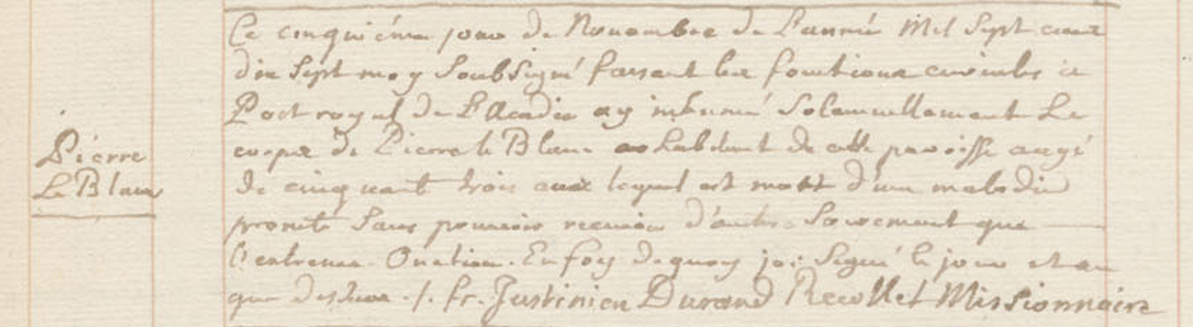 Ce cinquiéme jour de Novembre de L'année Mil Sept cent
dix Sept moy Soubsigné faisant les fonctions curiales a
Pierre
Le Blanc
Port royal de L'Acadie ay inhumé Solennellement Le
corps de Pierre le Blanc habitant de cette paroisse augé
de cinquante trois ans lequel est mort d'une maladie
promte Sans pouvoir recevoir d'autre Sacrement que
l'extreme Onction. En foy de quoy j'ai Signé le jour et an
que dessus ./. fr. Justinien Durand Recollet Missionnaire